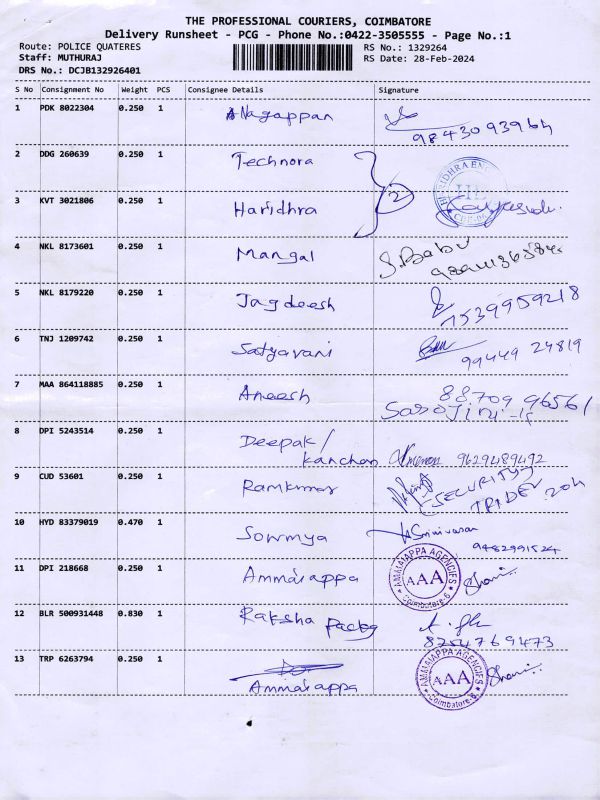 THE PROFESSIONAL COURIERS, COIMBATORE
Delivery Runsheet - PCG - Phone No.:0422-3505555 - Page No.:1
Route: POLICE QUATERES RS No.: 1329264
Staff: MUTHURAJ RS Date: 28-Feb-2024
DRS No.: DCJB132926401
S No Consignment No Weight PCS Consignee Details Signature
1 PDK 8022304 0.250 1 Nagappan
9843093964
2 DDG 260639 0.250 1 Technora
2
3 KVT 3021806 0.250 1 Haridhra
4 NKL 8173601 0.250 1 Mangal S.Babu
5 NKL 8179220 0.250 1 Jagdeesh
7539959218
6 TNJ 1209742 0.250 1 Satyavani
99449 24819
7 MAA 864118885 0.250 1 Aneesh 88709 96561
Sarojini
8 DPI 5243514 0.250 1 Deepak/
Kanchan 9629489492
9 CUD 53601 0.250 1 Ramkumar SECURITY
TRIDENT
10 HYD 83379019 0.470 1 Sowmya Srinivasan
9482991524
11 DPI 218668 0.250 1 Ammaiappa AMMAIAPPA AGENCIES AAA Coimbatore-6
12 BLR 500931448 0.830 1 Raksha
8254769473
13 TRP 6263794 0.250 1 Ammaiappa AMMAIAPPA AGENCIES AAA Coimbatore-6